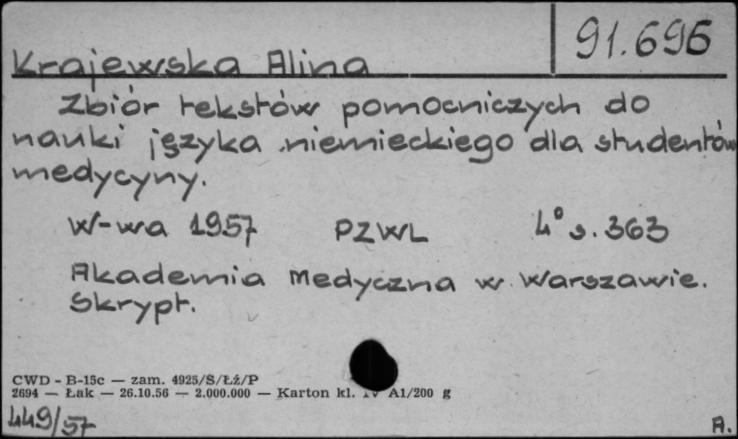 91.696
Krajewska Alina
Zbiór tekstów pomocniczych do
nauki języka niemieckiego dla studentów
medycyny.
W-wa 1957 PZWL 4° s. 363
Akademia Medyczna w Warszawie.
Skrypt.
CWD - B-15c — zam. 4925/S/Łż/P
2694 — Łak — 26.10.56 — 2.000.000 — Karton kl. IV A1/200 g
449/57 A.